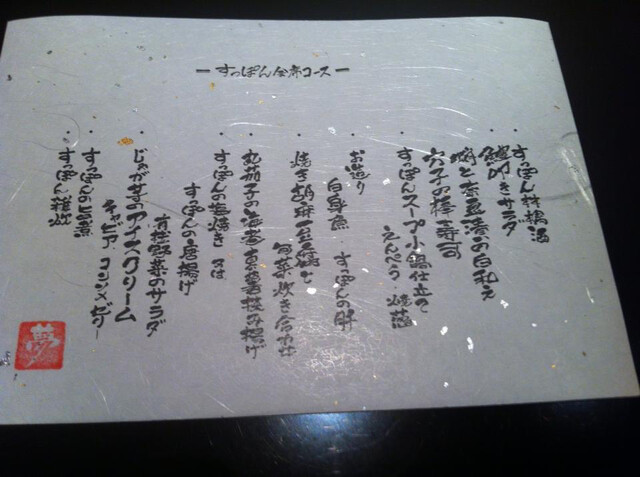 ー すっぽん会席コース ー
・すっぽん林檎酒
鱧叩きサラダ
穴子の棒寿司
・すっぽんスープ小鍋仕立て
えんぺら 焼葱
・お造り
白身魚 すっぽんの肝
・焼き胡麻豆腐と
旬菜炊き合わせ
・すっぽんの塩焼き 又は
すっぽんの唐揚げ
有機野菜のサラダ
・じゃがいものアイスクリーム
キャビア コンソメゼリー
・すっぽんの旨煮
・すっぽん雑炊
夢